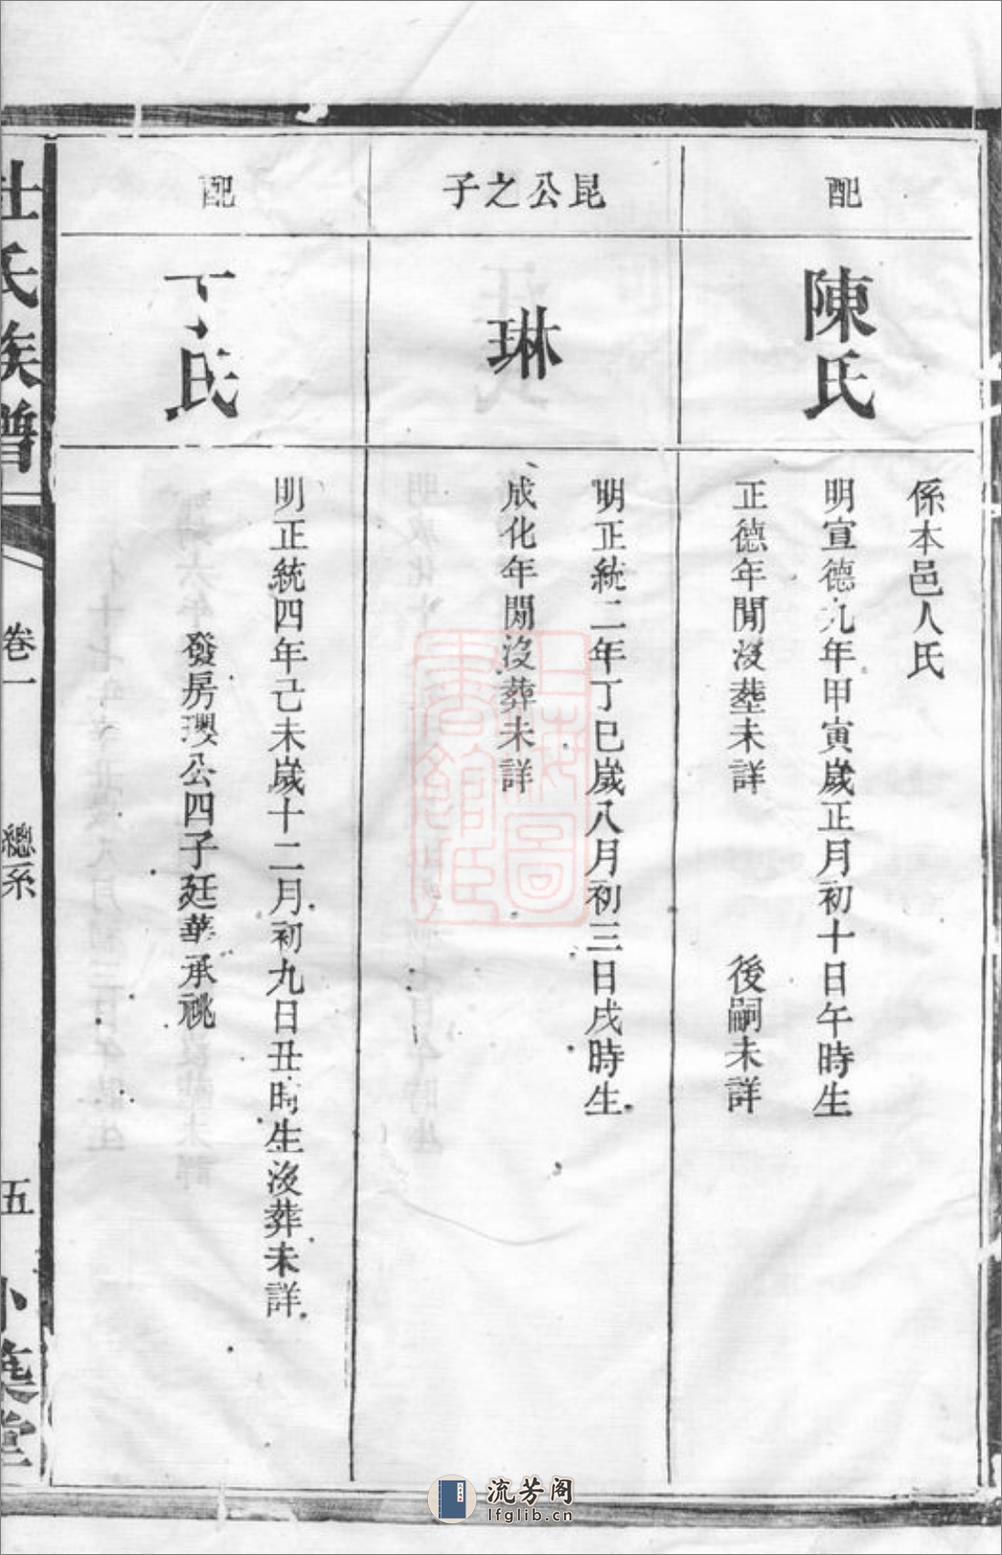 配
陳氏
係本邑人氏
明宣德九年甲寅歲正月初十日午時生
正德年閒沒塟未詳 後嗣未詳
昆公之子
琳
明正統二年丁巳歲八月初三日戌時生
成化年閒沒葬未詳
配
氏
明正統四年己未歲十二月初九日丑時生沒葬未詳
發房璎公四子廷華承祧
杜氏族譜
卷一
總系
五
流芳阁
lfglib.cn